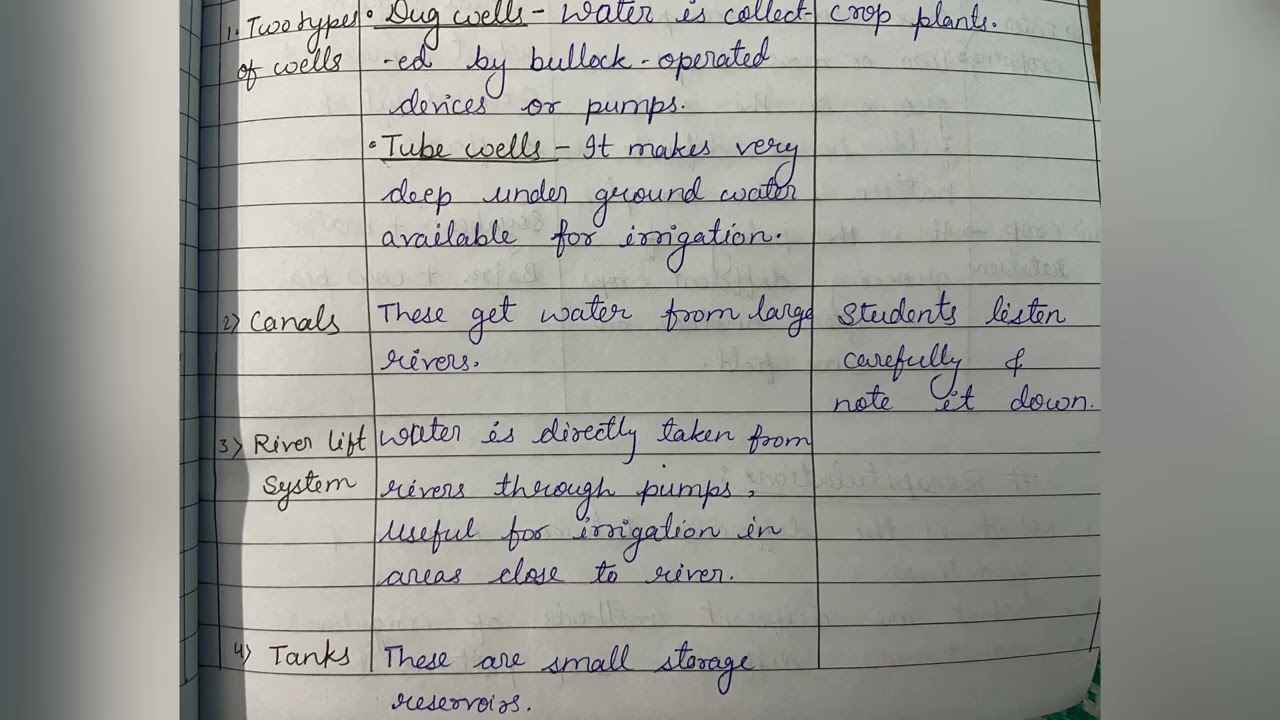 1. Two types • Dug wells - Water is collect- crop plants.
of wells -ed by bullock-operated
devices or pumps.
• Tube wells - It makes very
deep under ground water
available for irrigation.
2) Canals These get water from large Students listen
rivers. carefully &
note it down.
3) River lift Water is directly taken from
System rivers through pumps,
useful for irrigation in
areas close to river.
4) Tanks These are small storage
reservoirs.